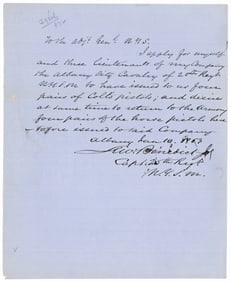 To the Adjt Genl. N.Y.S.
I apply for myself
and three Lieutenants of my Company
the Albany City Cavalry of 20th Regt
to have issued to us four
pairs of Colts pistols, and desire
at same time to return to the Armory
four pairs of the horse pistols here
tofore issued to said Company
Albany Jan 10, 186
Benedict Jr
Capt 20th Regt
N.G.S.N.